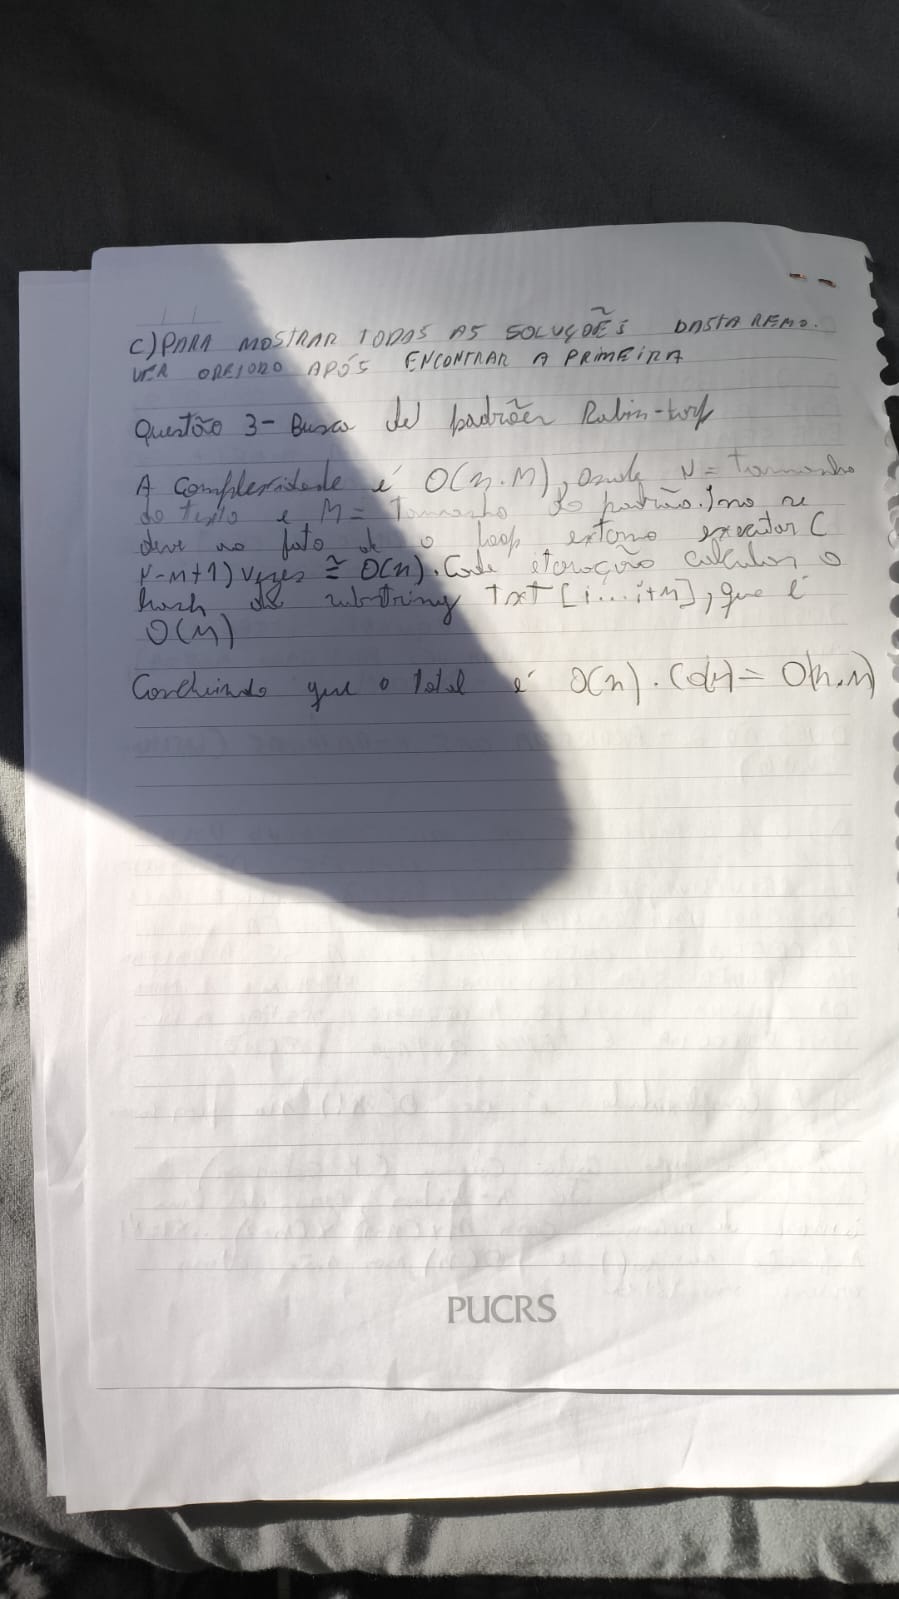 C) PARA MOSTRAR TODAS AS SOLUÇÕES BASTA REMO-
VER APÓS ENCONTRAR A PRIMEIRA
Questão 3 - Busca de padrões Rabin-karp
A complexidade é O(n.M), onde N = Tamanho
do texto e M = Tamanho do padrão. Isso se
deve ao fato de o loop externo executar (
N-M+1) vezes ≅ O(n). Cada iteração calcula o
hash da substring txt [i...i+M], que é
O(M)
Concluindo que o total é O(n). = O(n.M)
PUCRS